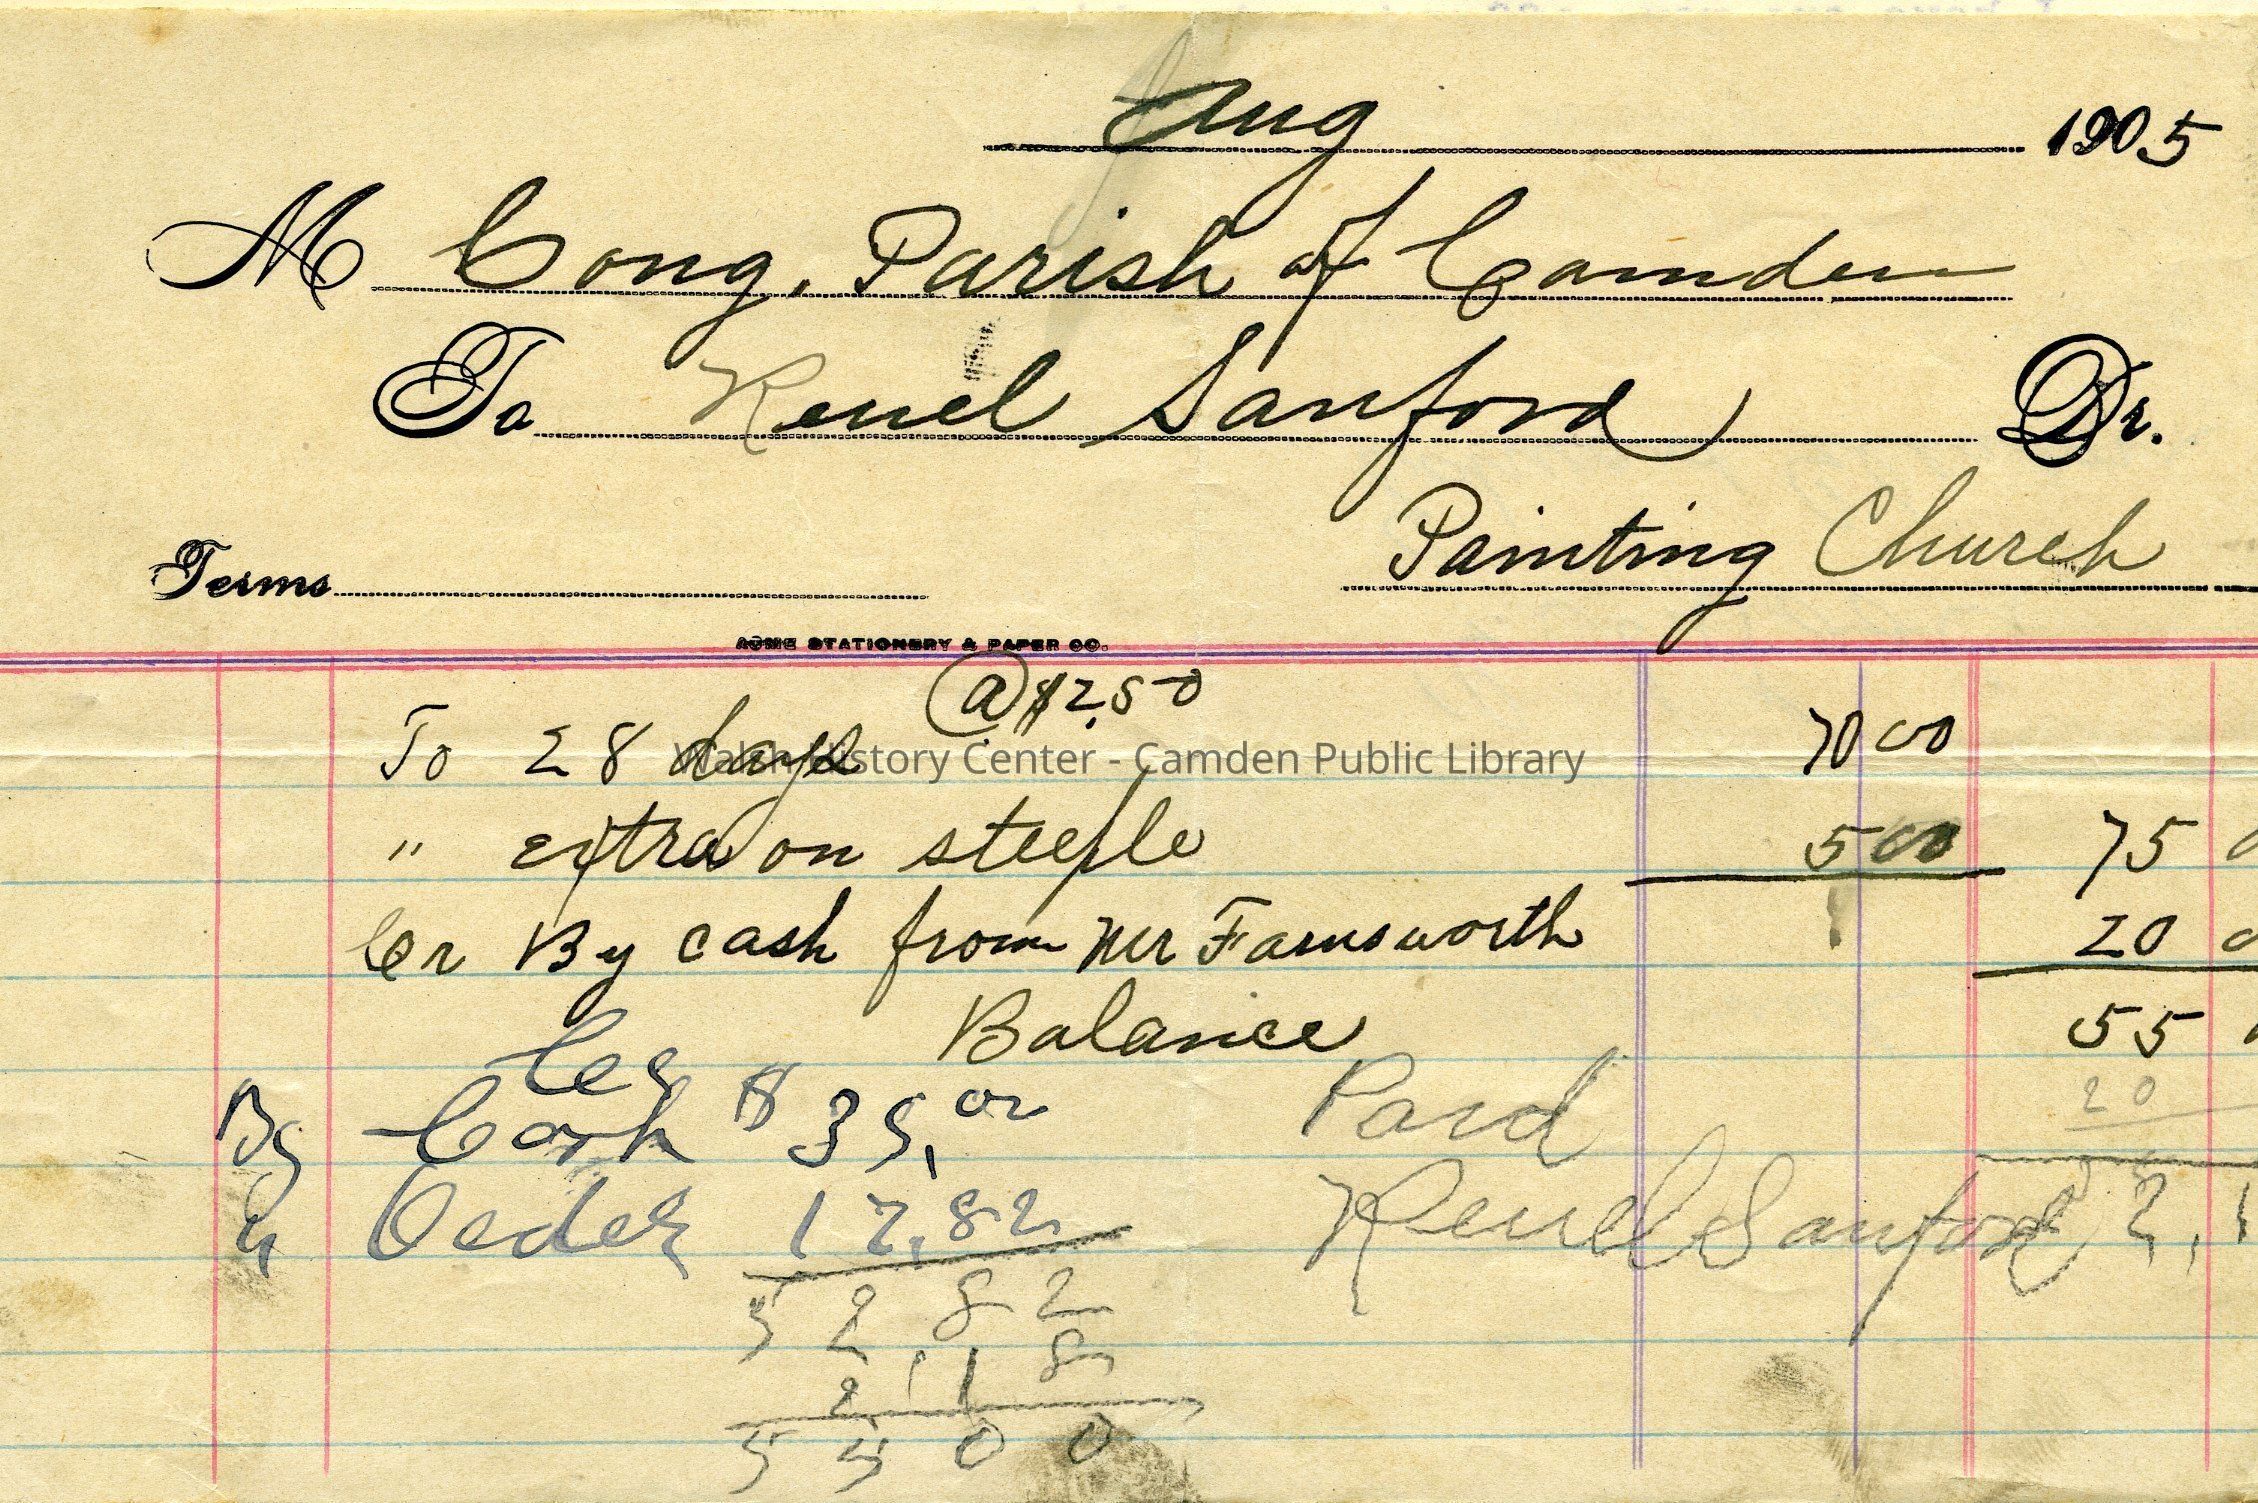 Aug 1905
M Cong. Parish of Camden
To Reuel Sanford Dr.
Painting Church
Terms
ACME STATIONERY & PAPER CO.
@ $2.50
To 28 days 70 00
Walsh History Center - Camden Public Library
" extra on steeple 5 00 75
Cr By cash from Mr Farnsworth 20
Balance 55
Cr 20
By Cash $ 35.00 Paid
" Order 17.82 Reuel Sanford 2,1
52 82
2.18
55 00